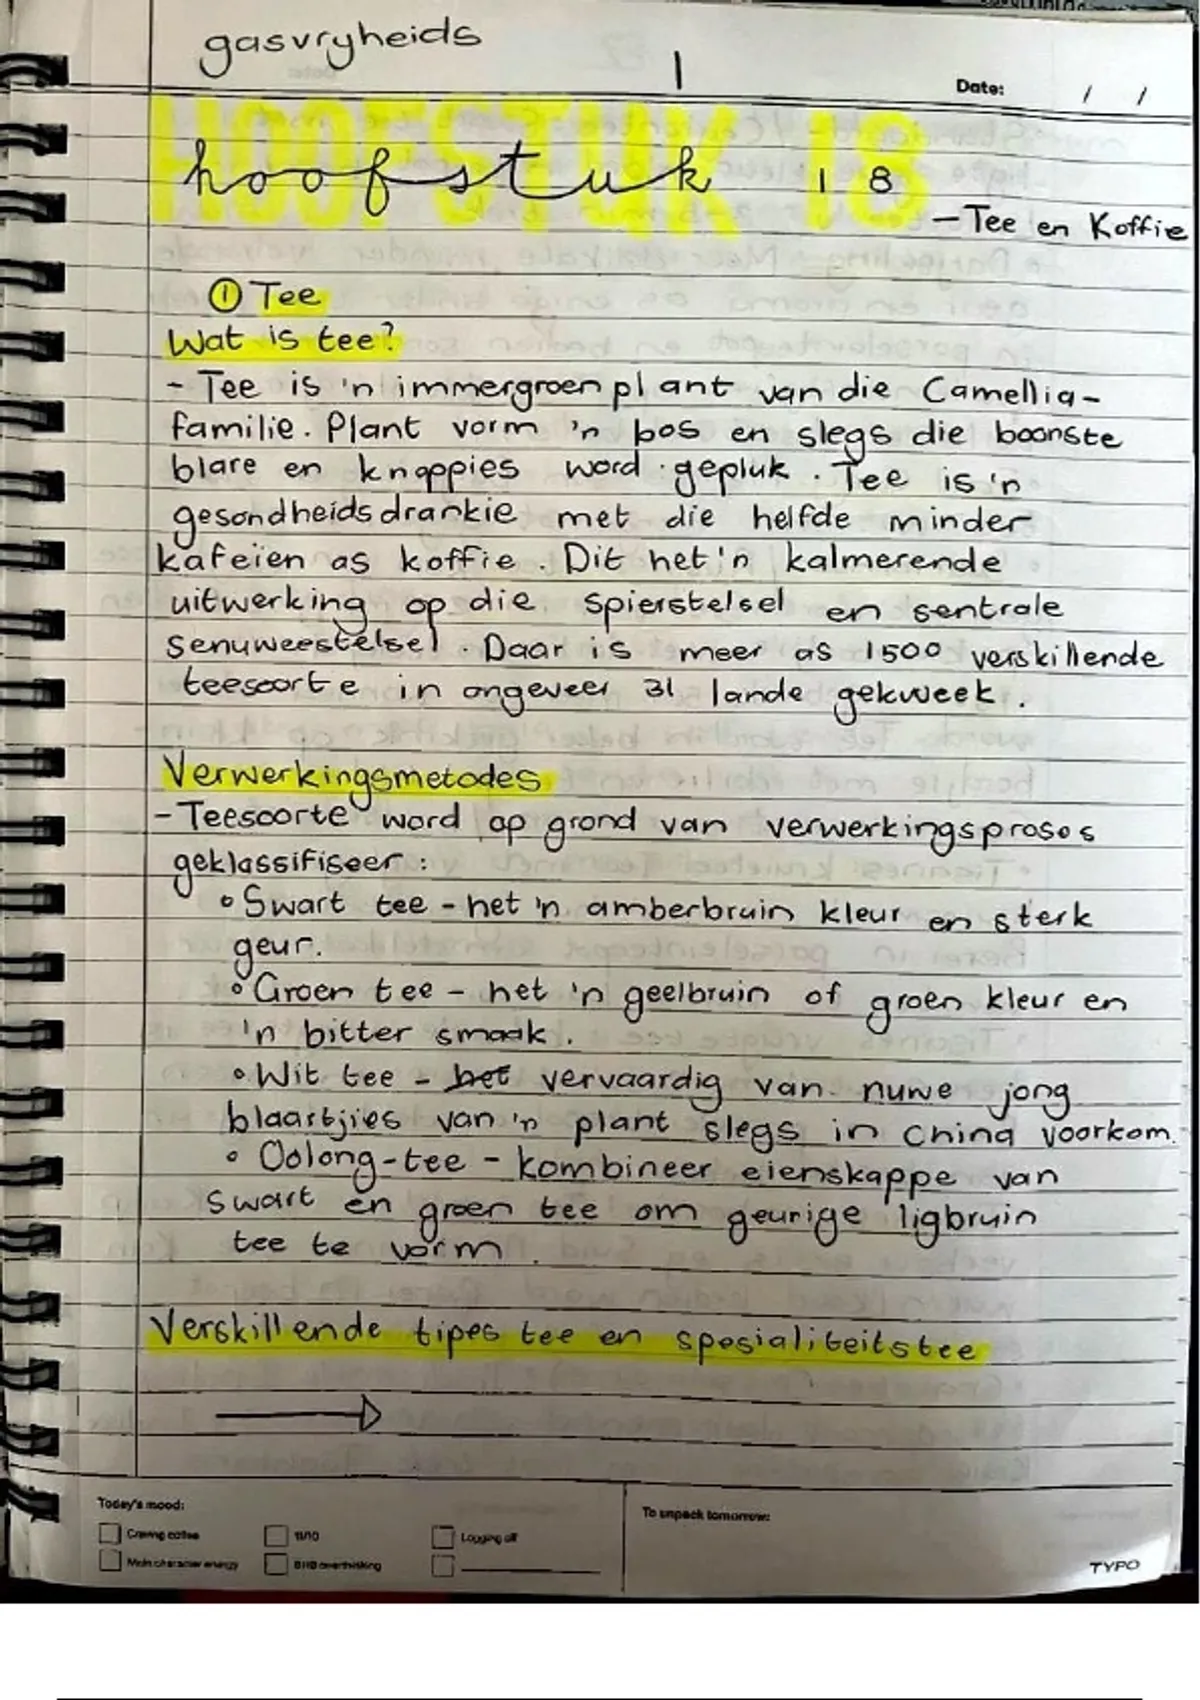 gasvryheids
1
Date: / /
HOOFSTUK 18
hoofstuk 18
- Tee en Koffie
① Tee
Wat is tee?
- Tee is 'n immergroen plant van die Camellia-
familie. Plant vorm 'n bos en slegs die boonste
blare en knoppies word gepluk. Tee is 'n
gesondheidsdrankie met die helfde minder
kafeïen as koffie. Dit het 'n kalmerende
uitwerking op die spierstelsel en sentrale
senuweestelsel. Daar is meer as 1500 verskillende
teesoorte in ongeveer 31 lande gekweek.
Verwerkingsmetodes
- Teesoorte word op grond van verwerkingsproses
geklassifiseer:
• Swart tee - het 'n amberbruin kleur en sterk
geur.
• Groen tee - het 'n geelbruin of groen kleur en
'n bitter smaak.
• Wit tee - het vervaardig van nuwe jong
blaartjies van 'n plant slegs in China voorkom.
• Oolong-tee - kombineer eienskappe van
swart en groen tee om geurige ligbruin
tee te vorm.
Verskillende tipes tee en spesialiteitstee
Today's mood:
To unpack tomorrow:
Craving coffee
11/10
Logging off
Main character energy
BRB overthinking
TYPO